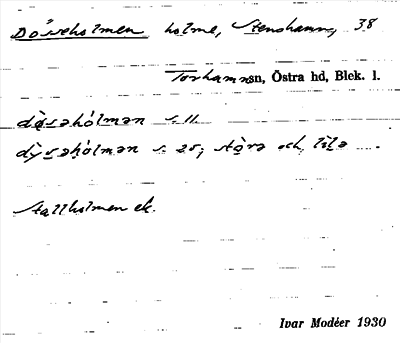 Dösseholmen holme, Stenshamn, 38
Torhamn sn, Östra hd, Blek. l.
dø̀səhólmən s. 11.
dỳsəhólmən s. 25; stòra och lìla
Stallholmen ek.
Ivar Modéer 1930